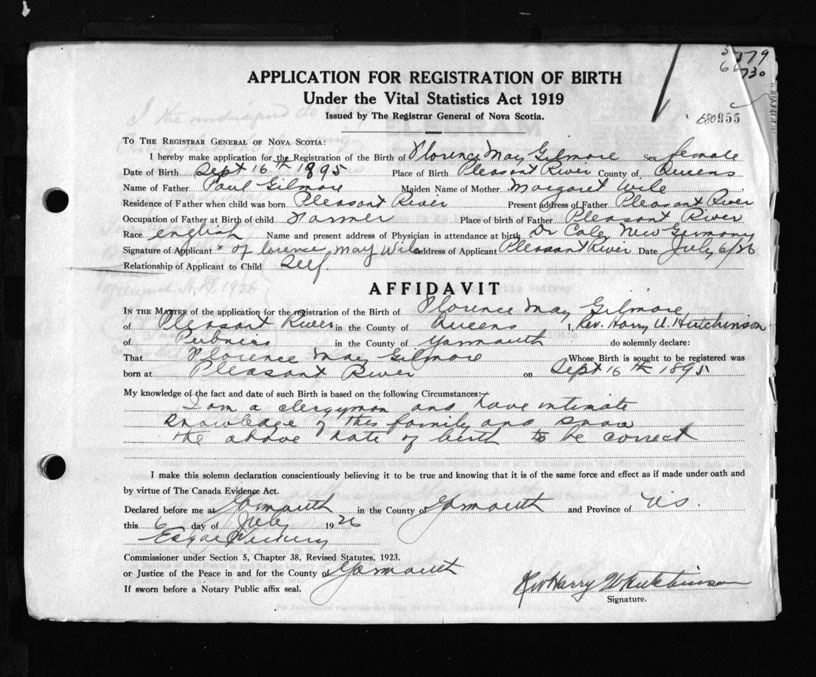 5779
6730
680955
APPLICATION FOR REGISTRATION OF BIRTH
Under the Vital Statistics Act 1919
Issued by The Registrar General of Nova Scotia.
To The Registrar General of Nova Scotia:
I hereby make application for the Registration of the Birth of Florence May Gilmore Sex female
Date of Birth Sept 16th 1895 Place of Birth Pleasant River County of Queens
Name of Father Paul Gilmore Maiden Name of Mother Margaret Wile
Residence of Father when child was born Pleasant River Present address of Father Pleasant River
Occupation of Father at Birth of child Farmer Place of birth of Father Pleasant River
Race english Name and present address of Physician in attendance at birth Dr Cole, New Germany
Signature of Applicant x Florence May Wile Address of Applicant Pleasant River Date July 6/26
Relationship of Applicant to Child Self.
AFFIDAVIT
In the Matter of the application for the registration of the Birth of Florence May Gilmore
of Pleasant River in the County of Queens I, Rev. Harry U. Hutchinson
of in the County of Yarmouth do solemnly declare:
That Florence May Gilmore Whose Birth is sought to be registered was
born at Pleasant River on Sept 16th 1895
My knowledge of the fact and date of such Birth is based on the following Circumstances:
I am a clergyman and have intimate
knowledge of this family and know
the above date of birth to be correct
I make this solemn declaration conscientiously believing it to be true and knowing that it is of the same force and effect as if made under oath and
by virtue of The Canada Evidence Act.
Declared before me at Yarmouth in the County of Yarmouth and Province of N.S.
this 6 day of July 1926
Commissioner under Section 5, Chapter 38, Revised Statutes, 1923.
or Justice of the Peace in and for the County of Yarmouth
If sworn before a Notary Public affix seal.
Rev Harry U Hutchinson
Signature.